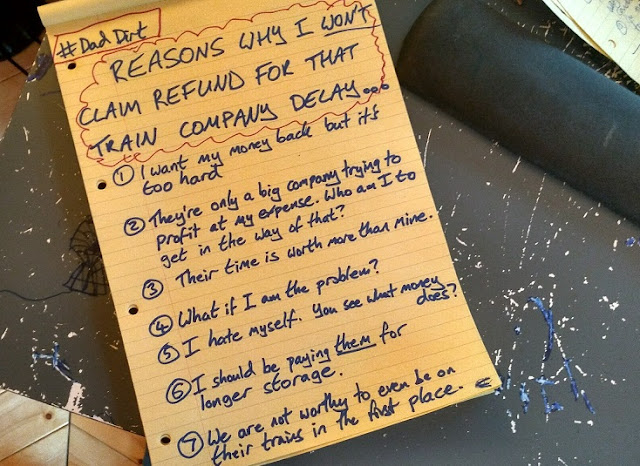 #DadDirt
REASONS WHY I WON'T
CLAIM REFUND FOR THAT
TRAIN COMPANY DELAY...
① I want my money back but it's
too hard
② They're only a big company trying to
profit at my expense. Who am I to
get in the way of that?
③ Their time is worth more than mine.
④ What if I am the problem?
⑤ I hate myself. You see what money
does?
⑥ I should be paying them for
longer storage.
⑦ We are not worthy to even be on
their trains in the first place.